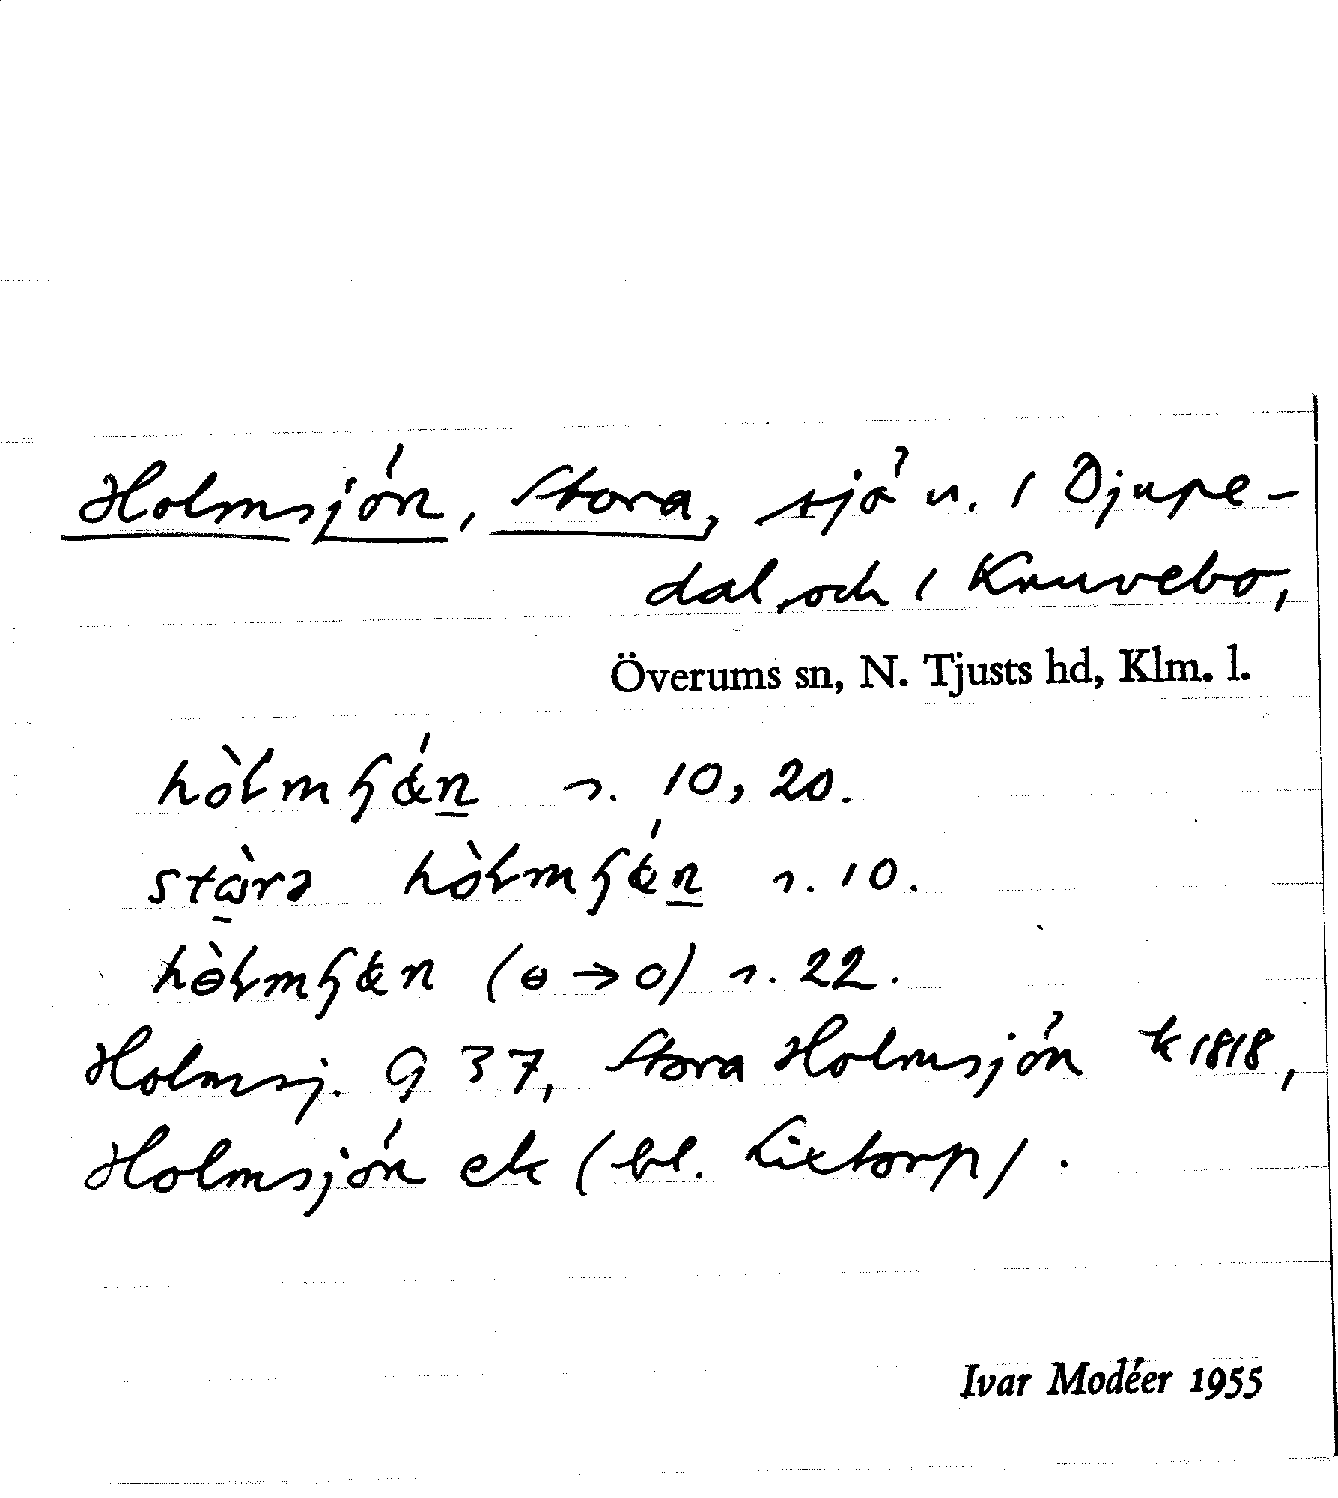 Holmsjön, Stora, sjö n. i Djupe-
dal och i Knuvebo,
Överums sn, N. Tjusts hd, Klm. l.
s. 10, 20.
s. 10.
(ɵ → o) s. 22.
Holmsj. G 37, Stora Holmsjön k 1818,
Holmsjön ek (bl. Lixtorp).
Ivar Modéer 1955